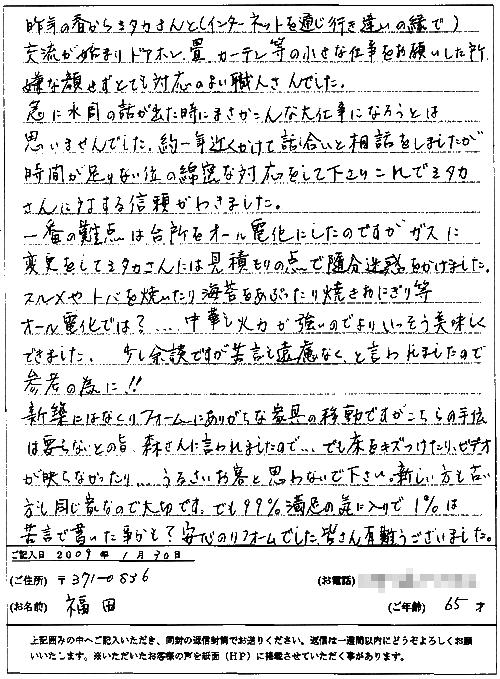 昨年の春からミタカさんと(インターネットを通じ行き違いの縁で)
交流が始まりドアホン、畳、カーテン等の小さな仕事をお願いした所
嫌な顔せずとても対応のよい職人さんでした。
急に水回の話が出た時にまさかこんな大仕事になろうとは
思いませんでした。約一年近くかけて話合いと相談をしましたが
時間が足りない位の綿密な対応をして下さりこれでミタカ
さんに対する信頼がわきました。
一番の難点は台所をオール電化にしたのですがガスに
変更をしてミタカさんには見積もりの点で随分迷惑をかけました。
スルメやトバを焼いたり海苔をあぶったり焼きおにぎり等
オール電化では?....中華も火力が強いのでよりいっそう美味しく
できました。 少し余談ですが苦言も遠慮なくと言われましたので
参考の為に!!
新築にはなくリフォームにありがちな家具の移動ですがこちらの手伝
は要らないとの旨、森さんに言われましたので...でも床をキズつけたり、ビデオ
が映らなかったり....うるさいお客と思わないで下さい。新しい方も古い
方も同じ家なので大切です。でも99%満足の域に入りで1%は
苦言で書いた事かも?安心のリフォームでした。皆さん有難うございました。
ご記入日 2009年 1月30日
(ご住所) 〒371-0836 (お電話)
(お名前) 福田 (ご年齢) 65才
上記囲みの中へご記入いただき、同封の返信封筒でお送りください。返信は一週間以内にどうぞよろしくお願
いいたします。※いただいたお客様の声を紙面(HP)に掲載させていただく事があります。